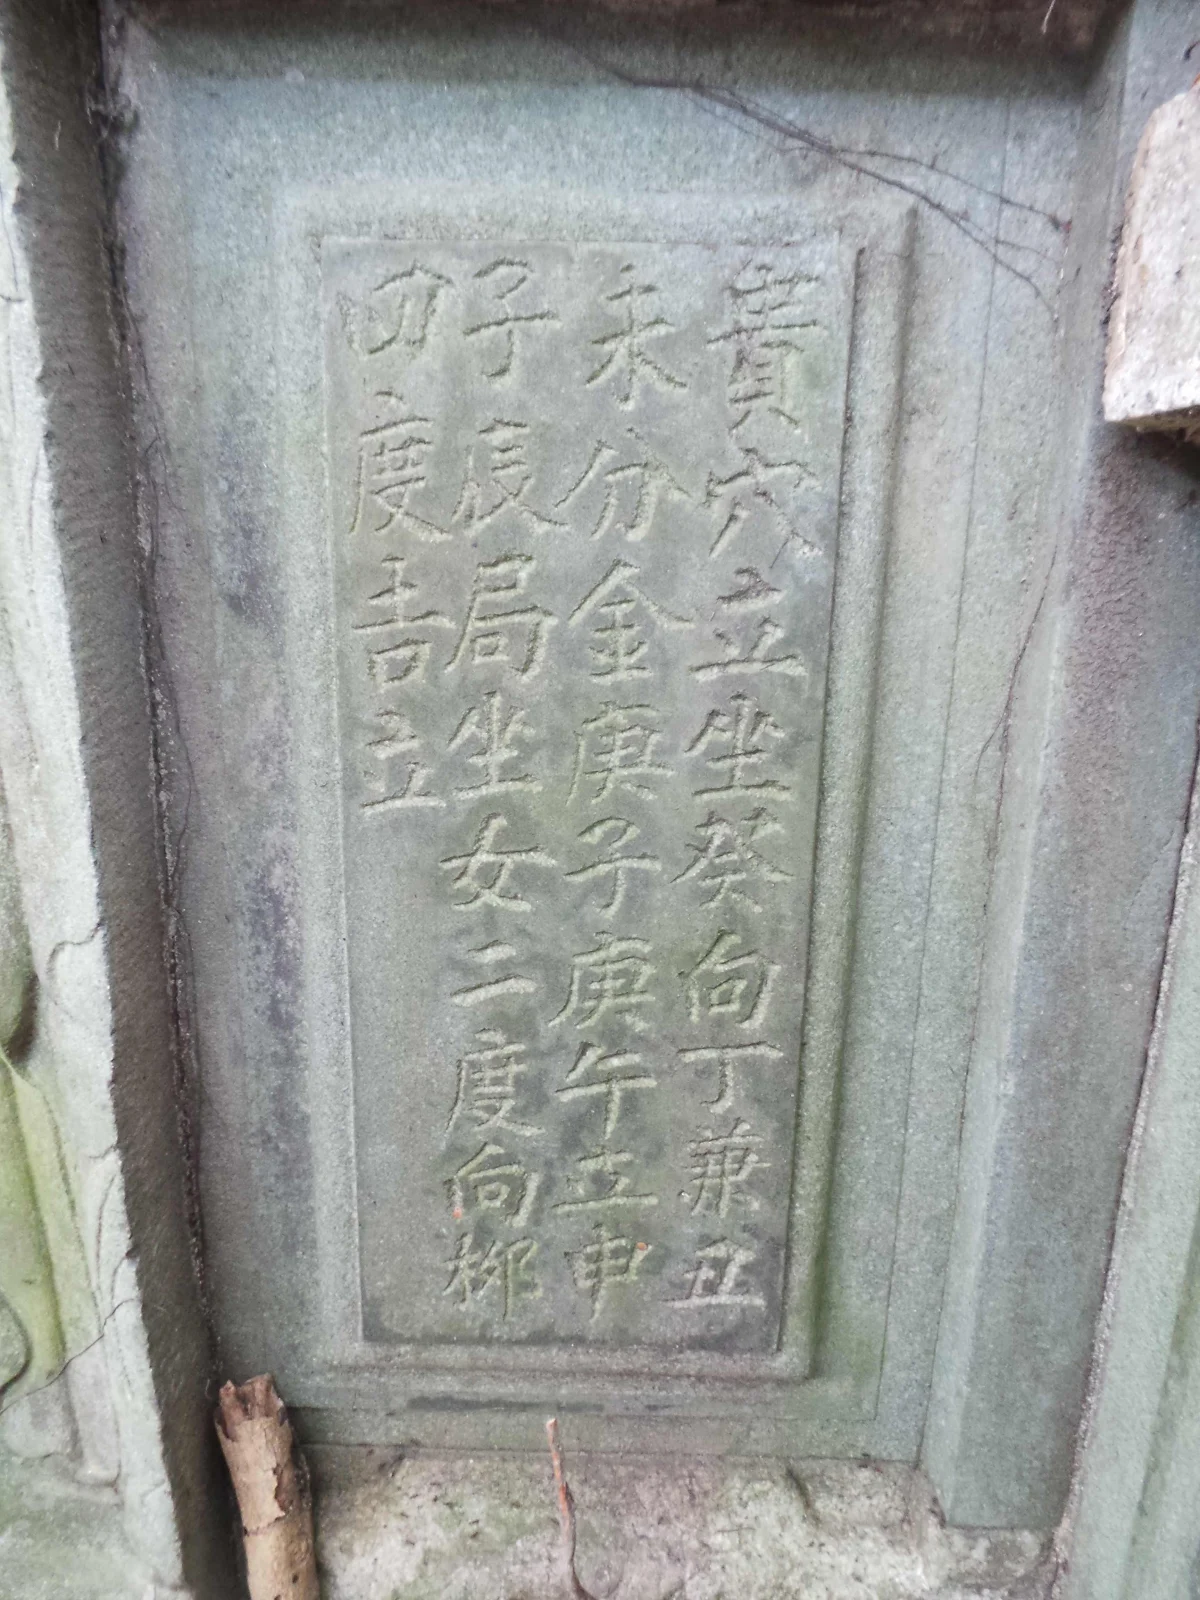 賁穴立坐癸向丁兼丑
未分金庚子庚午立申
子辰局坐女二度向柳
四度吉立